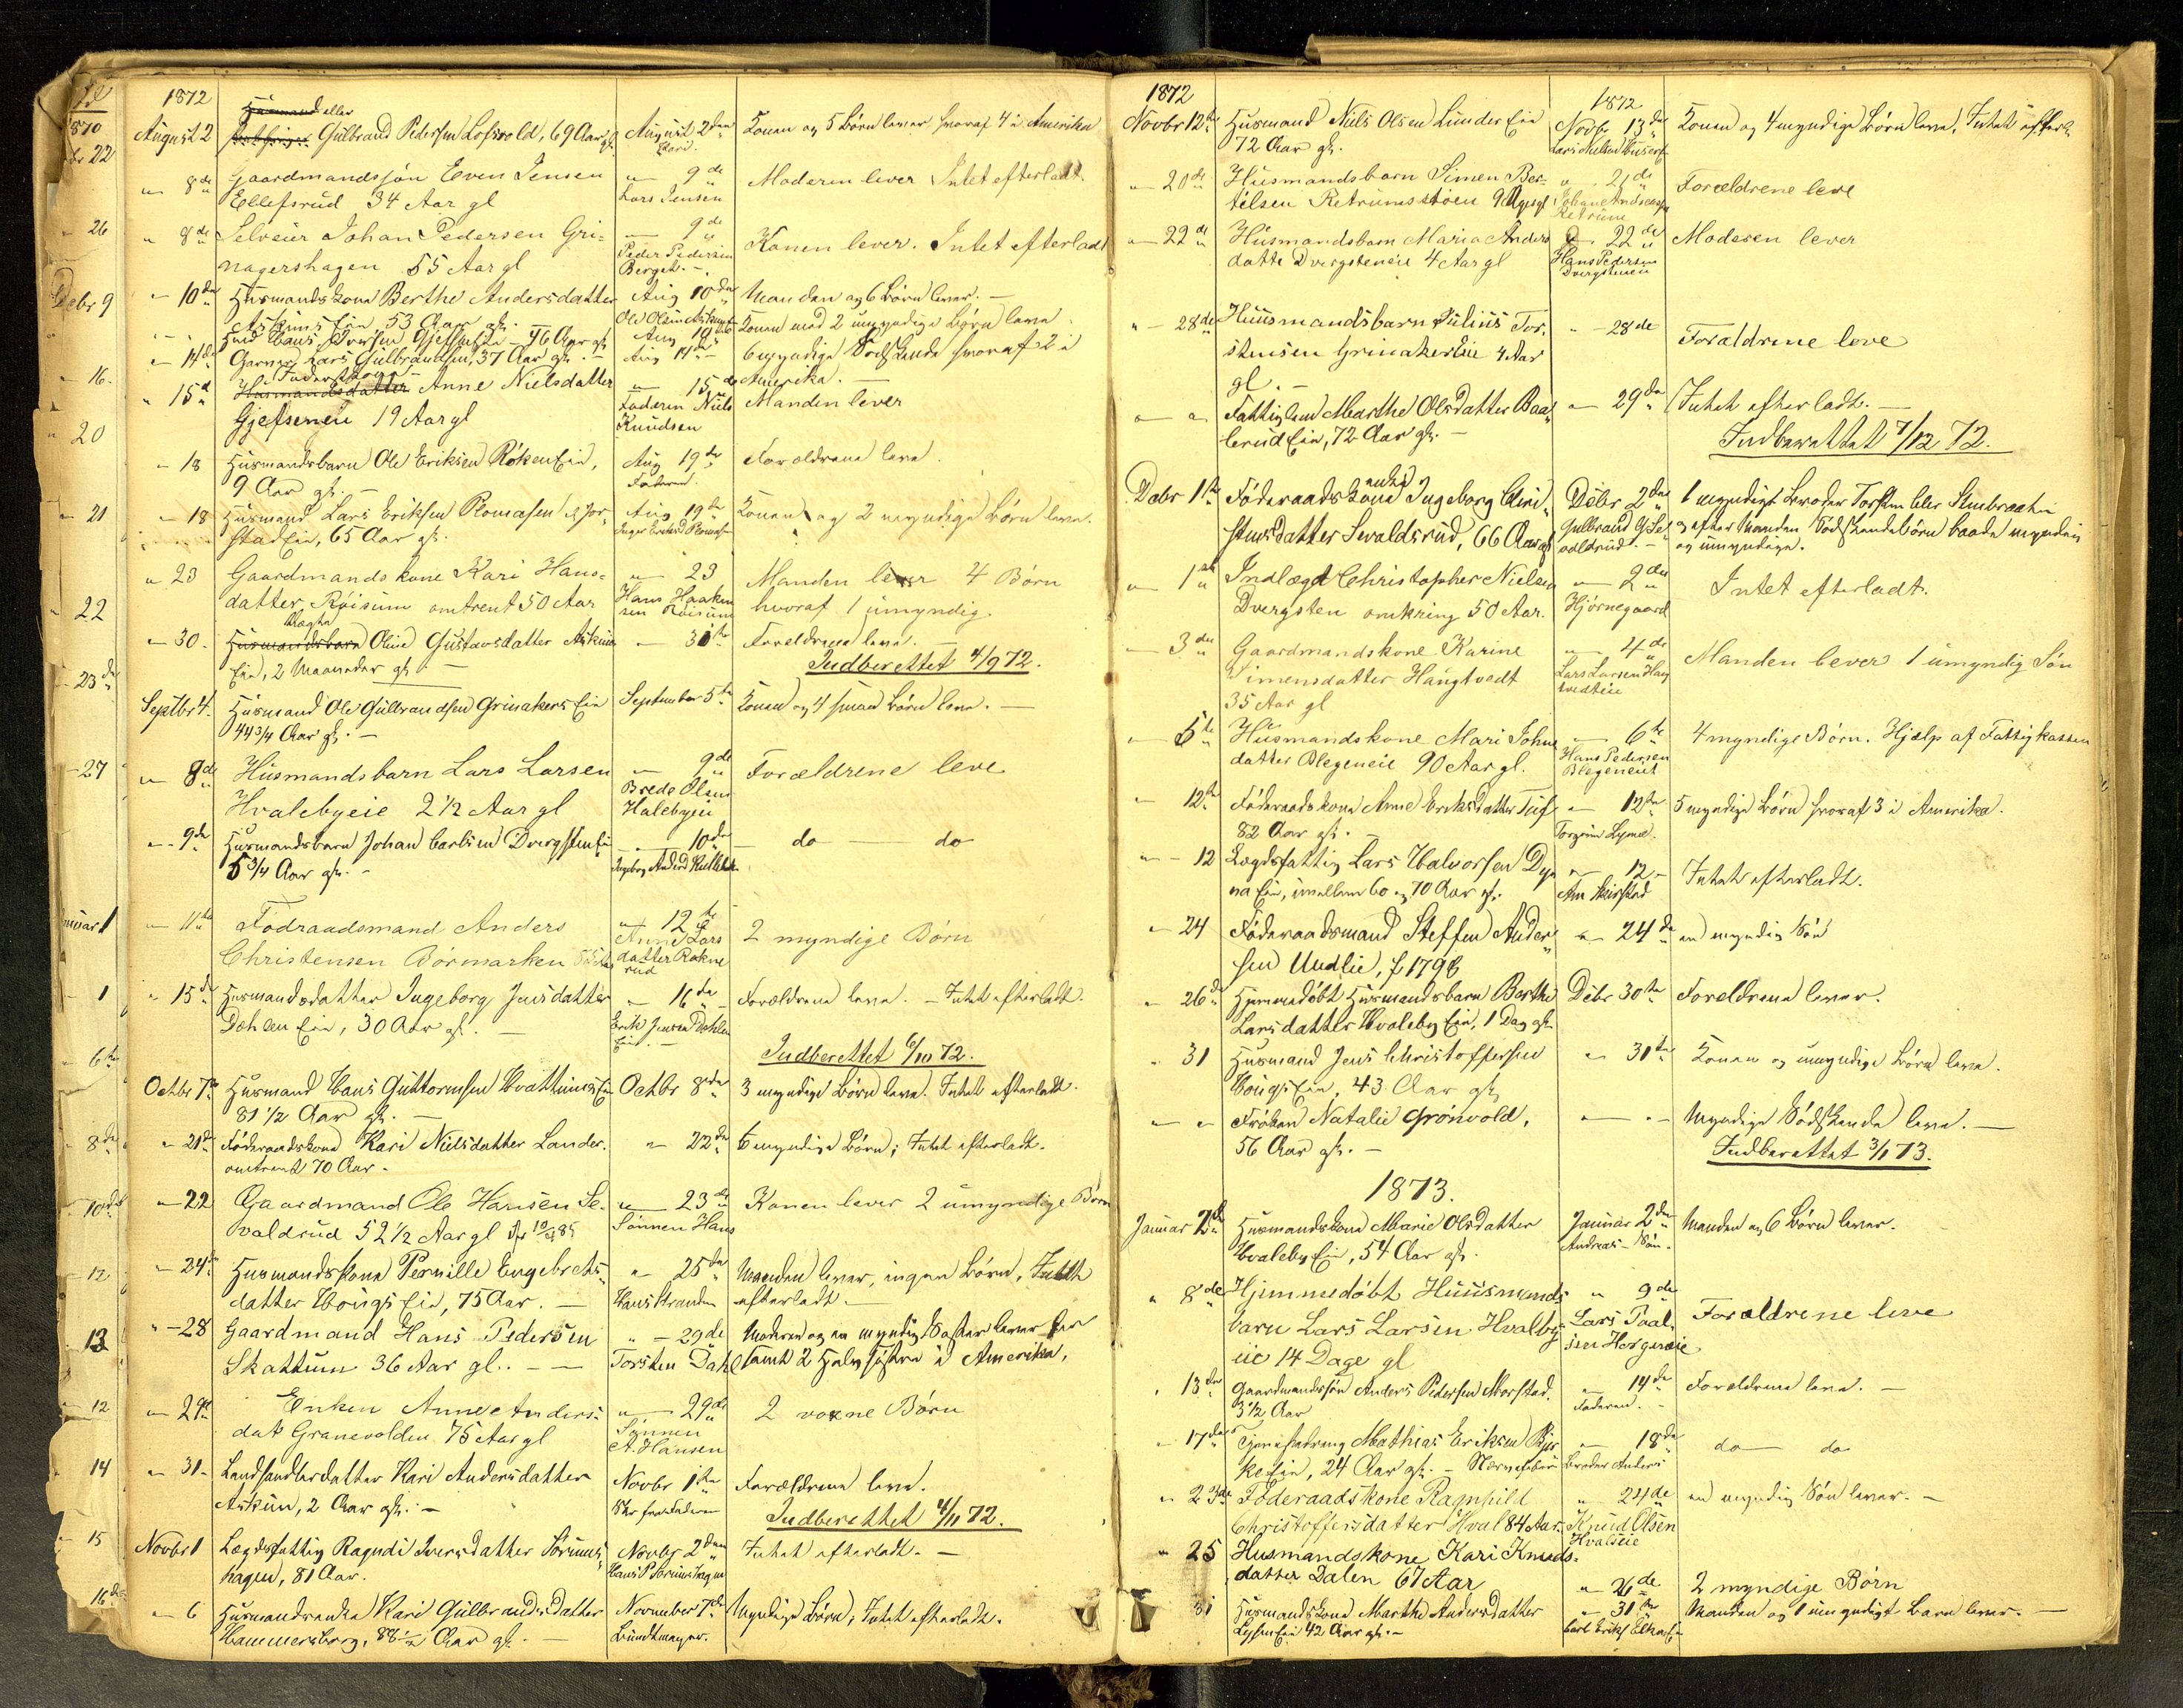 1872
Husmand eller
August 2 Gulbrand Pedersen Lofsvold, 69 Aar gl. August 2den Konen og 5 Børn lever hvoraf 4 i Amerika
" 8de Gaardmandssøn Even Jensen " 9de Moderen lever Intet efterladt
Ellefsrud 34 Aar gl Lars Jensen
" 8de Selveier Johan Pedersen Gri- " 9de Konen lever. Intet efterladt
nagershagen 55 Aar gl Peder Pedersen
Berget.
" 10de Husmandskone Berthe Andersdatter Aug 10de Manden og 6 Børn lever.
Askims Eie 53 Aar gl. Ole Olsen
Konen med 2 umyndige Børn leve
" 14de Garver Lars Gulbrandsen, 37 Aar gl. Aug 14de 6 myndige Sødskende hvoraf 2 i
Amerika.
" 15de Husmandsdatter Anne Nielsdatter " 15de Manden lever
Gjefseneie 19 Aar gl Faderen Niels
Knudsen
" 18 Husmandsbarn Ole Eriksen Røken Eie, Aug 19de Forældrene leve.
9 Aar gl. Faderen
" 18 Husmand Lars Eriksen Plomasen Aug 19de Konen og 2 myndige Børn leve.
stad Eie, 65 Aar gl.
" 23 Gaardmandskone Kari Hans- " 23 Manden lever 4 Børn
datter Røisum omtrent 50 Aar Hans Haaken hvoraf 1 umyndig
sen Røisum
" 30. Husmandsbarn Oline Gustavsdatter Askim " 30te Forældrene leve.
Eie, 2 Maaneder gl Indberettet 4/9 72.
Septbr 4. Husmand Ole Gulbrandsen Grinakers Eie September 5te Konen og 4 smaa Børn leve.
44 3/4 Aar gl.
" 8de Husmandsbarn Lars Larsen " 9de Forældrene leve
Hvalebyeie 2 1/2 Aar gl Brede Olsen
Halebyeie
" 9de Husmandsbarn Johan Carlsen Dvergsten Eie " 10de do do
5 3/4 Aar gl.
" 11te Fødraadsmand Anders " 12te 2 myndige Børn
Christensen Børmarken Anne Lars
datter Rakne
rud
" 15de Husmandsdatter Ingeborg Jensdatter " 16de Forældrene leve. Intet efterladt.
Dæhlen Eie, 30 Aar gl. Erik Jensen Dæhlen
Eie.
Indberettet 6/10 72.
Octbr 7de Husmand Hans Guttormsen Hvattums Eie Octbr 8de 3 myndige Børn leve. Intet efterladt.
81 1/2 Aar gl.
" 21de Føderaadskone Kari Nielsdatter Lander. " 22de 6 myndige Børn; Intet efterladt.
omtrent 70 Aar.
" 22 Gaardmand Ole Hansen Se- " 23de Konen lever 2 umyndige Børn
valdrud 52 1/2 Aar gl Sønnen Hans
" 24de Husmandskone Pernille Engebrets- " 25de Manden lever, ingen Børn, Intet
datter Hougs Eie, 75 Aar. Hans Stranden efterladt.
" 28 Gaardmand Hans Pedersen " 29de Moderen og en myndig Søster lever her
Skattum 36 Aar gl. Torsten Dahl samt 2 Halvsøstre i Amerika,
" 29de Enken Anne Anders- " 29de 2 voxne Børn
dat Granevolden 75 Aar gl Sønnen
A. Hansen
" 31. Landhandlerdatter Kari Andersdatter Novbr 1ste Forældrene leve.
Askim, 2 Aar gl. Indberettet 4/11 72.
Novbr 1 Lægdsfattig Ragndi Iversdatter Sørums Novbr 2den Intet efterladt.
hagen, 81 Aar. Hans P Sørumshagen
" 6 Husmandsenke Kari Gulbrandsdatter November 7de Myndige Børn; Intet efterladt.
Hammersborg, 88 1/2 Aar gl. Bundtmager.
1872 1872
Novbr 12te Husmand Niels Olsen Lunder Eie Novbr 13de Konen og 4 myndige Børn leve, Intet efterl.
72 Aar gl. Lars Nielsen
" 20de Husmandsbarn Simen Ber- " 21de Forældrene leve
telsen Retrumsstøen 9 Uger gl Johan Andreasen
Retrum
" 22de Husmandsbarn Maria Anders " 22de Moderen lever
datte Dvergsteneie 4 Aar gl Hans Pedersen
Dvergsteneie
" 28de Huusmandsbarn Julius Tor- " 28de Forældrene leve
stensen Grinaker Eie 4 Aar
gl.
" " Fattiglem Marthe Olsdatter Baa- " 29de Intet efterladt.
lerud Eie, 72 Aar gl. Indberettet 7/12 72.
Debr 1ste Føderaadskone Ingeborg Chri- Debr 2den 1 myndigt Broder Torsten
stensdatter Sevaldsrud, 66 Aar gl Gulbrand og efter Manden Sødskendebørn baade myndige
valdrud. og umyndige.
" 1ste Indlægd Christopher Nielsen " 2den Intet efterladt.
Dvergsten omkring 50 Aar. Hjørnegaard
" 3die Gaardmandskone Karine " 4de Manden lever 1 umyndig Søn
Simensdatter Haugtvedt Lars Larsen Haug
35 Aar gl tvedteie
" 5te Husmandskone Mari Johns " 6te 4 myndige Børn. Hjælp af Fattigkassen
datter Blegeneie 90 Aar gl. Hans Pedersen
Blegeneie
" 12te Føderaadskone Anne Eriksdatter Tuf " 12te 5 myndige Børn hvoraf 3 i Amerika.
82 Aar gl. Torgrim Lynne.
" 12 Lægdsfattig Lars Halvorsen Dy- " 12 Intet efterladt.
na Eie, imellem 60 og 70 Aar gl.
" 24 Føderaadsmand Steffen Ander- " 24de en myndig Søn
sen Undlie, f. 1796
" 26de Hjemmedøbt Husmandsbarn Berthe Debr 30te Forældrene lever.
Larsdatter Hvaleby Eie, 1 Dag gl.
" 31 Husmand Jens Christoffersen " 31te Konen og umyndige Børn leve.
Hougs Eie, 43 Aar gl,
" " Frøken Natalie Grønvold, " " Myndige Sødskende leve.
56 Aar gl. Indberettet 3/1 73.
1873.
Januar 2den Husmandskone Marie Olsdatter Januar 2den Manden og 6 Børn lever.
Hvaleby Eie, 54 Aar gl. Andreas - Søn.
" 8de Hjemmedøbt Huusmands " 9de Forældrene leve
barn Lars Larsen Hvalby- Lars Paal-
eie 14 Dage gl sen Horgeneie
" 13de Gaardmandssøn Anders Pedersen Morstad. " 14de Forældrene leve.
3 1/2 Aar Faderen.
" 17de Tjenestedreng Mathias Eriksen Bjer- " 18de do do
ke Eie, 24 Aar gl. - Nervefeber Broder Anders
" 23de Føderaadskone Ragnhild " 24de en myndig Søn lever.
Christoffersdatter Hval 84 Aar. Knud Olsen
Hvalseie
" 25 Husmandskone Kari Knuds-
datter Dalen 67 Aar " 26de 2 myndige Børn
31 Husmandskone Marthe Andersdatter " 31te Manden og 1 umyndigt Barn lever.
Eie 42 Aar gl.